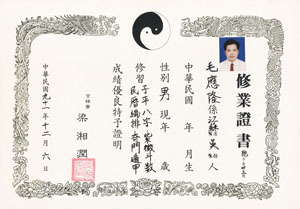 修業證書
毛應隆係江蘇吳縣人
中華民國 年 月生
性別男現年 歲
修習子平八字紫微斗數
民曆編排奇門遁甲
成績優良特予證明
梁湘潤
中華民國九十一年十二月六日